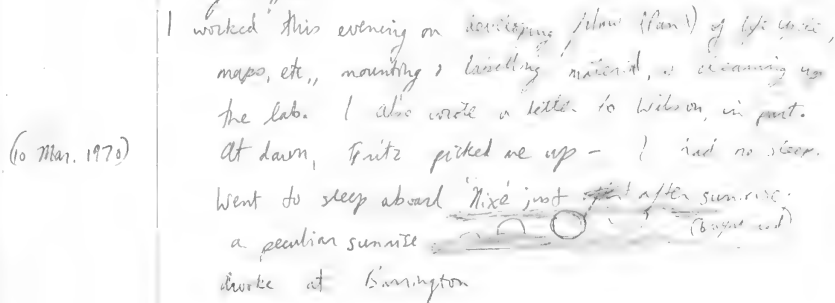 I worked this evening on developing film (Pan X) of
maps, etc., mounting & labelling material, & cleaning up
the lab. I also wrote a letter to Wilson, in part.
(10 Mar. 1970) At dawn, Fritz picked me up – I had no sleep.
Went to sleep aboard 'Nixe' just after sunrise.
a peculiar sunrise
awoke at Barrington